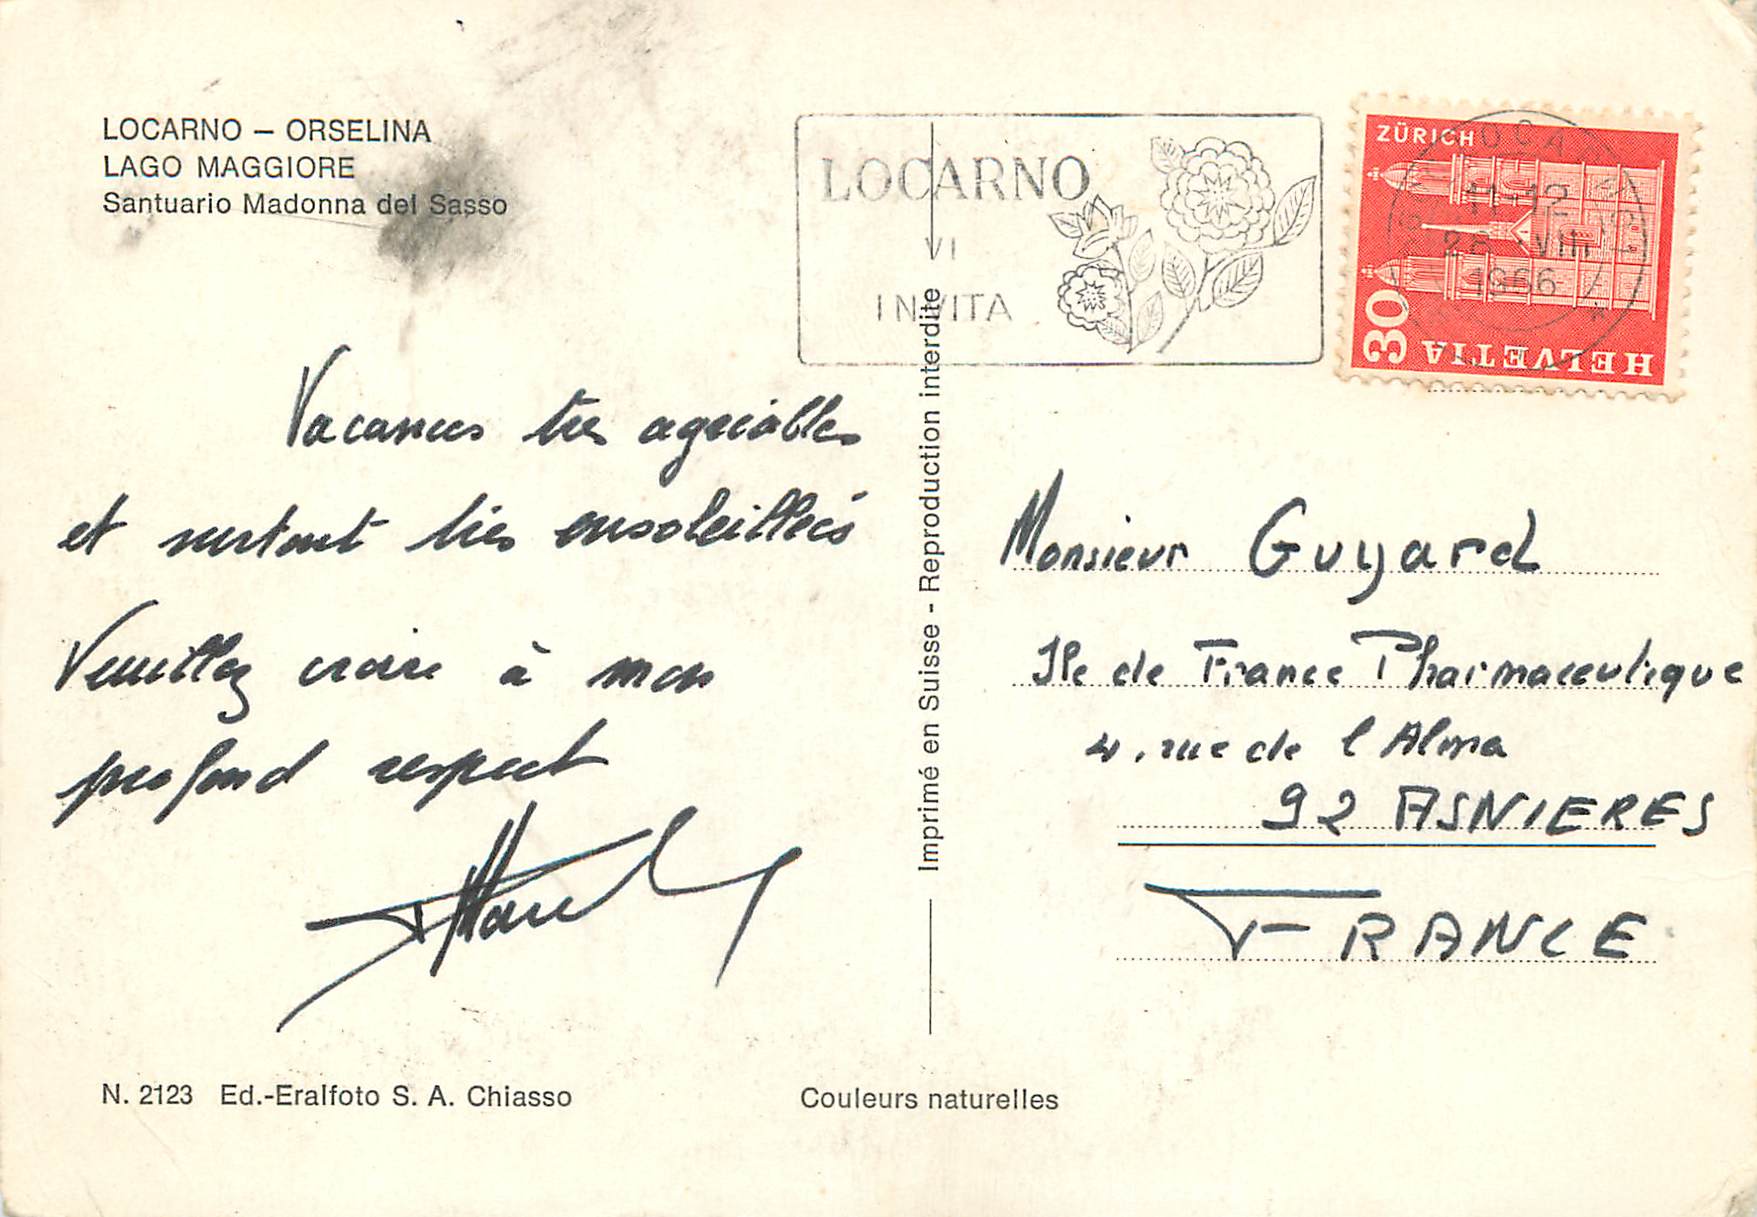 LOCARNO – ORSELINA
LAGO MAGGIORE
Santuario Madonna del Sasso
Vacances très agréables
et surtout très ensoleillées
Veuillez croire à mon
profond respect
N. 2123 Ed.-Eralfoto S. A. Chiasso
Couleurs naturelles
Imprimé en Suisse - Reproduction interdite
LOCARNO
VI
INVITA
ZÜRICH
30
HELVETIA
11-12
VIII
1966
Monsieur Guyard
Ile de France Pharmaceutique
4, rue de l'Alma
92 ASNIERES
FRANCE